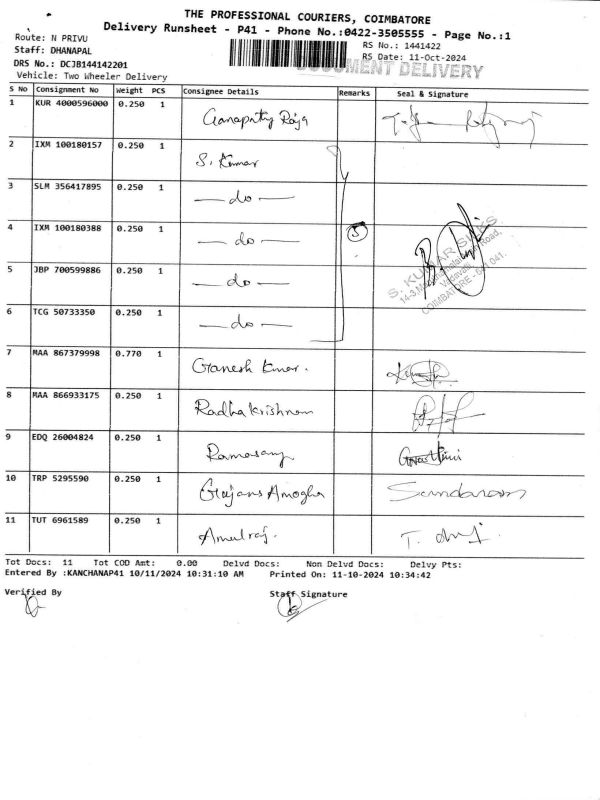 THE PROFESSIONAL COURIERS, COIMBATORE
Delivery Runsheet - P41 - Phone No.:0422-3505555 - Page No.:1
Route: N PRIVU
RS No.: 1441422
Staff: DHANAPAL
RS Date: 11-Oct-2024
DRS No.: DCJB144142201
DOCUMENT DELIVERY
Vehicle: Two Wheeler Delivery
S No Consignment No Weight PCS Consignee Details Remarks Seal & Signature
1 KUR 4000596000 0.250 1 Ganapathy Raja
2 IXM 100180157 0.250 1 S. Kumar
3 SLM 356417895 0.250 1 — do —
4 IXM 100180388 0.250 1 — do — 5
5 JBP 700599886 0.250 1 — do —
6 TCG 50733350 0.250 1 — do —
S. KUMAR SILKS
Road,
Vadavalli
COIMBATORE - 641 041.
7 MAA 867379998 0.770 1 Ganesh Kumar.
8 MAA 866933175 0.250 1 Radha Krishnan
9 EDQ 26004824 0.250 1 Ramasamy
10 TRP 5295590 0.250 1 Gajans Amogha Sundaram
11 TUT 6961589 0.250 1 Amulraj.
Tot Docs: 11 Tot COD Amt: 0.00 Delvd Docs: Non Delvd Docs: Delvy Pts:
Entered By :KANCHANAP41 10/11/2024 10:31:10 AM Printed On: 11-10-2024 10:34:42
Verified By Staff Signature